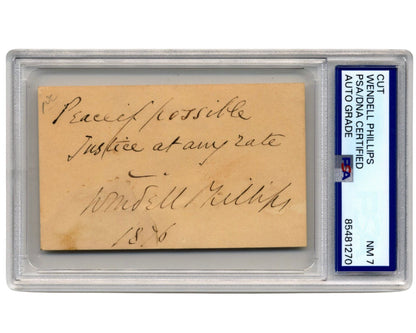 Peace if possible
Justice at any rate
Wendell Phillips
1876
CUT
WENDELL PHILLIPS
PSA/DNA CERTIFIED
AUTO GRADE
PSA
NM 7
85481270